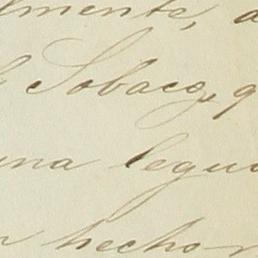 lmente, a
Sobaco, q
una legua
n hechor